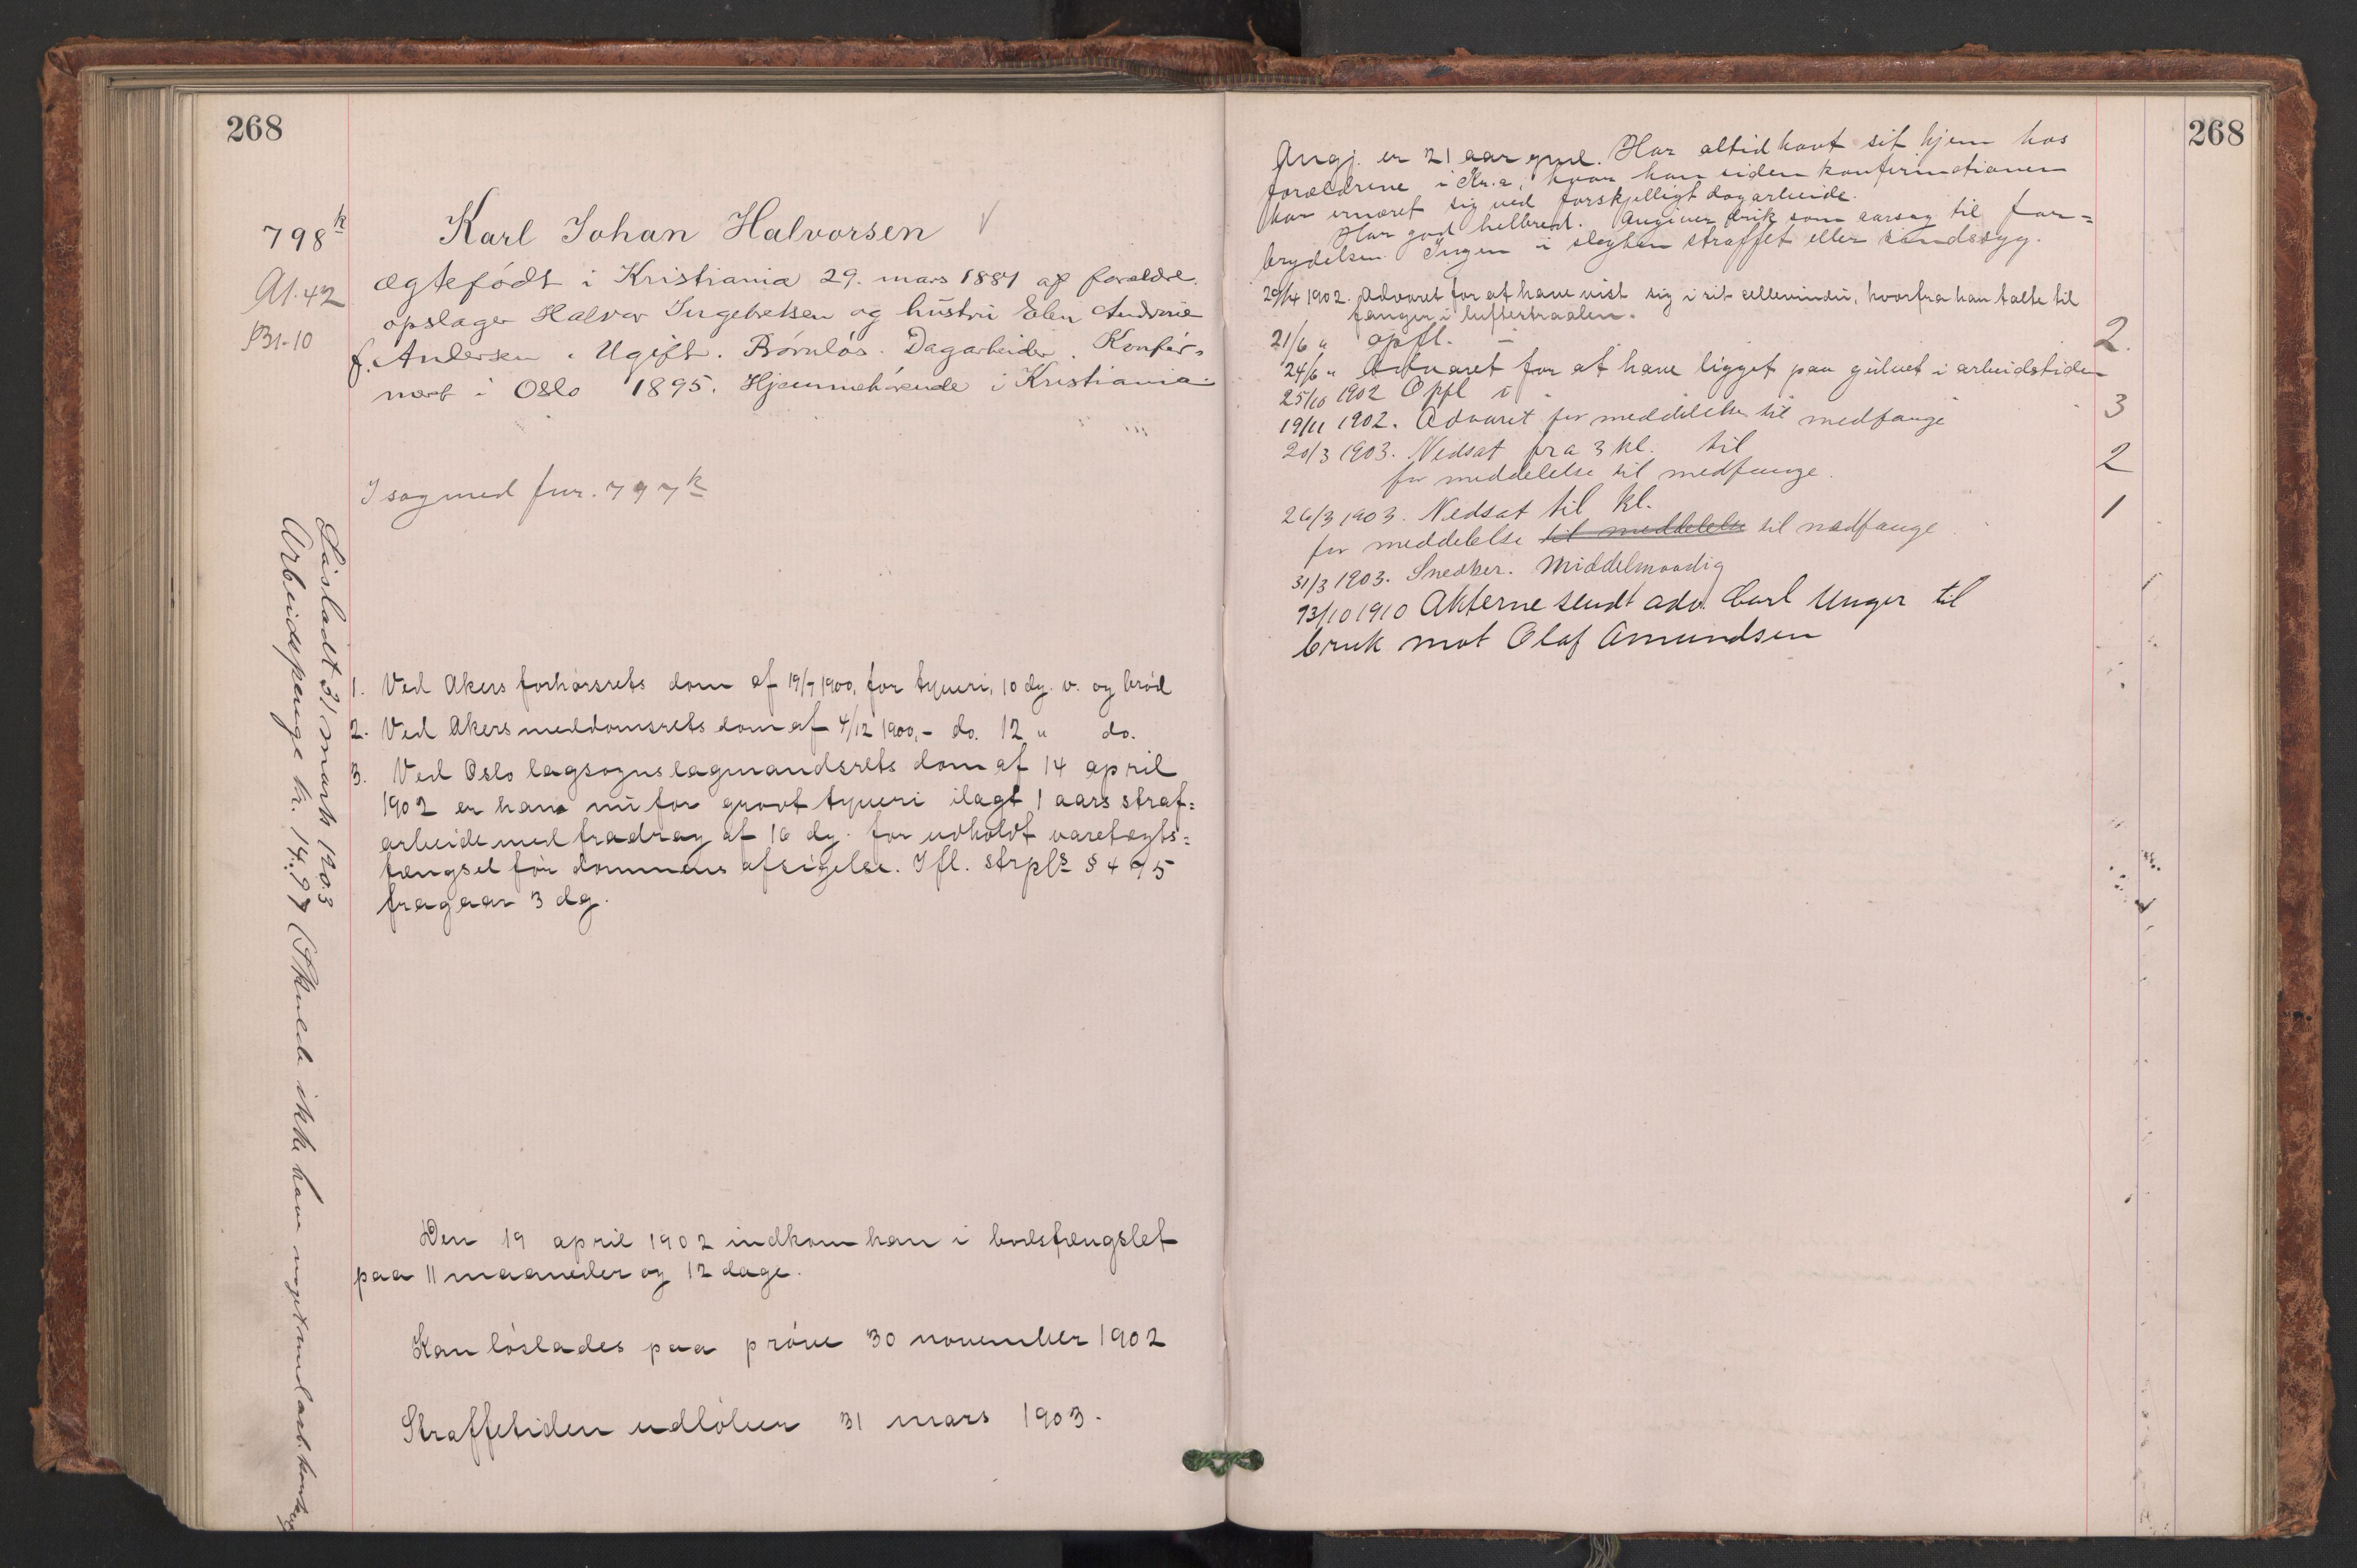 268
798k
Karl Johan Halvorsen
At. 42
B1-10
ægtefødt i Kristiania 29. mars 1881 af forældre
opslager Halvor Ingebretsen og hustru Elen Andrine
f. Andersen. Ugift. Børnløs. Dagarbeider. Konfir-
meret i Oslo 1895. Hjemmehørende i Kristiania.
I sag med fnr. 797k
1. Ved Akers forhørsrets dom af 19/7 1900, for tyveri, 10 dg. v. og brød
2. Ved Akers meddomsrets dom af 4/12 1900, - do. 12 " do.
3. Ved Oslo lagsogns lagmandsrets dom af 14 april
1902 er han nu for grovt tyveri ilagt 1 aars straf=
arbeide med fradrag af 16 dg. for udholdt varetægts=
fængsel før dommens afsigelse. Ifl. strpls § 475
fragaar 3 dg.
Den 19 april 1902 indkom han i bodsfængslet
paa 11 maaneder og 12 dage.
Kan løslades paa prøve 30 november 1902
Straffetiden udløber 31 mars 1903.
Løsladt 31 marts 1903
Arbeidspenge kr. 14.97 (Skulde ikke have noget med
268
Angj. er 21 aar gml. Har altid havt sit hjem hos
forældrene i Kr.a, hvor han siden konfirmationen
har ernæret sig ved forskjelligt dagarbeide.
Har god helbred. Angiver drik som aarsag til for=
brydelsen. Ingen i slegten straffet eller sindssyg.
29/4 1902. Advaret for at have vist sig i sit cellevindu, hvorfra han talte til
fanger i luftestraalen.
21/6 " opfl. i 2.
24/6 " Advaret for at have ligget paa gulvet i arbeidstiden
25/10 1902 Opfl i 3
19/11 1902. Advaret for meddelelse til medfange
20/3 1903. Nedsat fra 3 kl. til 2
for meddelelse til medfange.
26/3 1903. Nedsat til kl. 1
for meddelelse til meddelelse til medfange
31/3 1903. Snedker. Middelmaadig
13/10 1910 Akterne sendt adv. Carl Unger til
bruk mot Olaf Amundsen